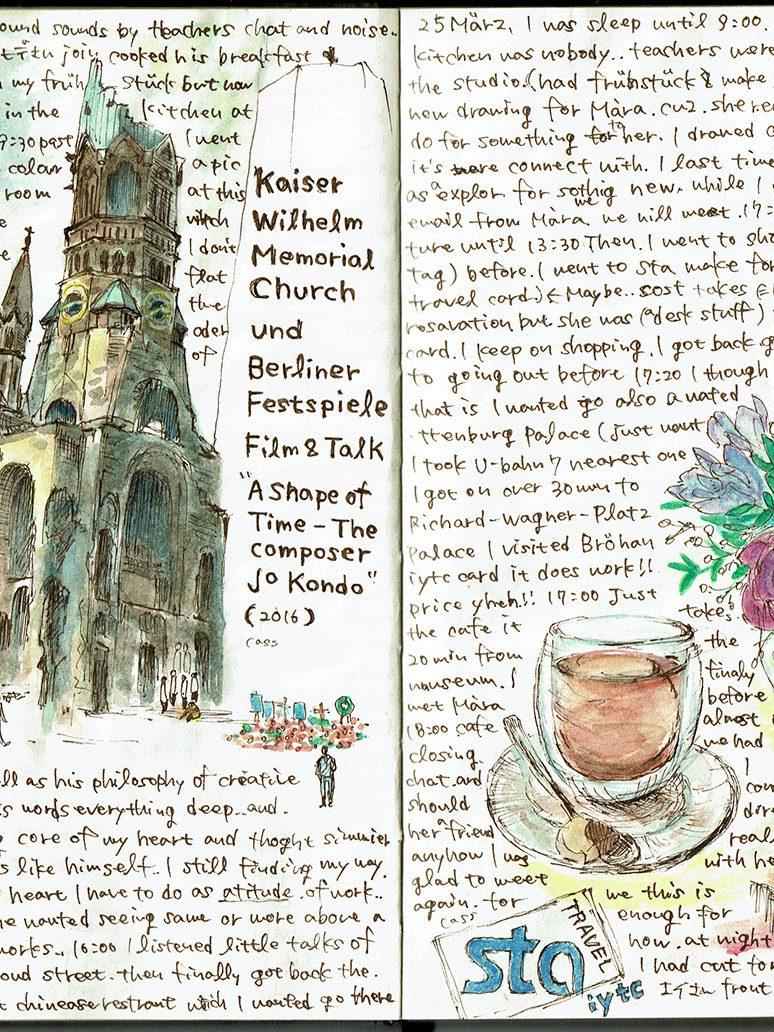 ound sounds by teachers chat and noise..
join cooked his breakfast
my früh stück but now
in the kitchen at
9:30 past I went
colour a pic
room at this
which
I don't
flat
the
oder
of
Kaiser
Wilhelm
Memorial
Church
und
Berliner
Festspiele
Film & Talk
"A Shape of
Time - The
composer
Jo Kondo"
(2016)
cass
ll as his philosophy of creative
s words everything deep..and.
core of my heart and thoght simmier
s like himself.. I still finding my way.
heart I have to do as atitude of work..
he wanted seeing same or more above a
works.. 16:00 I listened little talks of
oud street. then finally got back the.
chinease restrant wich I wanted go there
25 März, I was sleep until 9:00.
kitchen was nobody.. teachers were
the studio. (had frühstück & make
new drawing for Màra. cuz. she re
do for something to her. I drawed
it's connect with. I last time
as a explor. for sothig new. while I
email from Màra we will meet. 17:
ture until 13:30 Then. I went to sh
tag) before. I went to sta make for
travel card) < Maybe.. sost takes
rosavation but she was (desk stuff)
card. I keep on shopping. I got back
to going out before 17:20 I though
that is I wanted go also a nafed
ttenburg Palace (just want
I took U-bahn 7 nearest one
I got on over 30min to
Richard-Wagner-Platz
Palace I visited Bröhan
iytc card it does work!!
price yheh!! 17:00 Just
the cafe it takes.
20 min from the
museum. I finaly
met Màra before
18:00 cafe almost
closing. we had
chat. and I
should com
her a friend dir
anyhow I was real
glad to meet with he
again. for we this is
cass enough for
now. at night
I had cut for
front
TRAVEL
sta
iytc